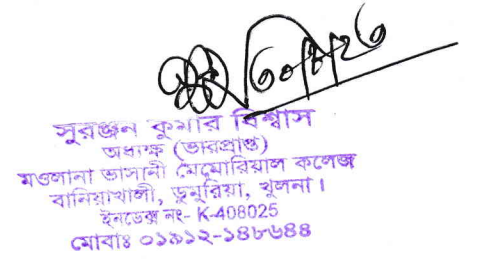 ৩০/৮/২৩
সুরঞ্জন কুমার বিশ্বাস
অধ্যক্ষ (ভারপ্রাপ্ত)
মওলানা ভাসানী মেমোরিয়াল কলেজ
বানিয়াখালী, ডুমুরিয়া, খুলনা।
ইনডেক্স নং- K-408025
মোবাঃ ০১৯১২-১৪৮৬৪৪